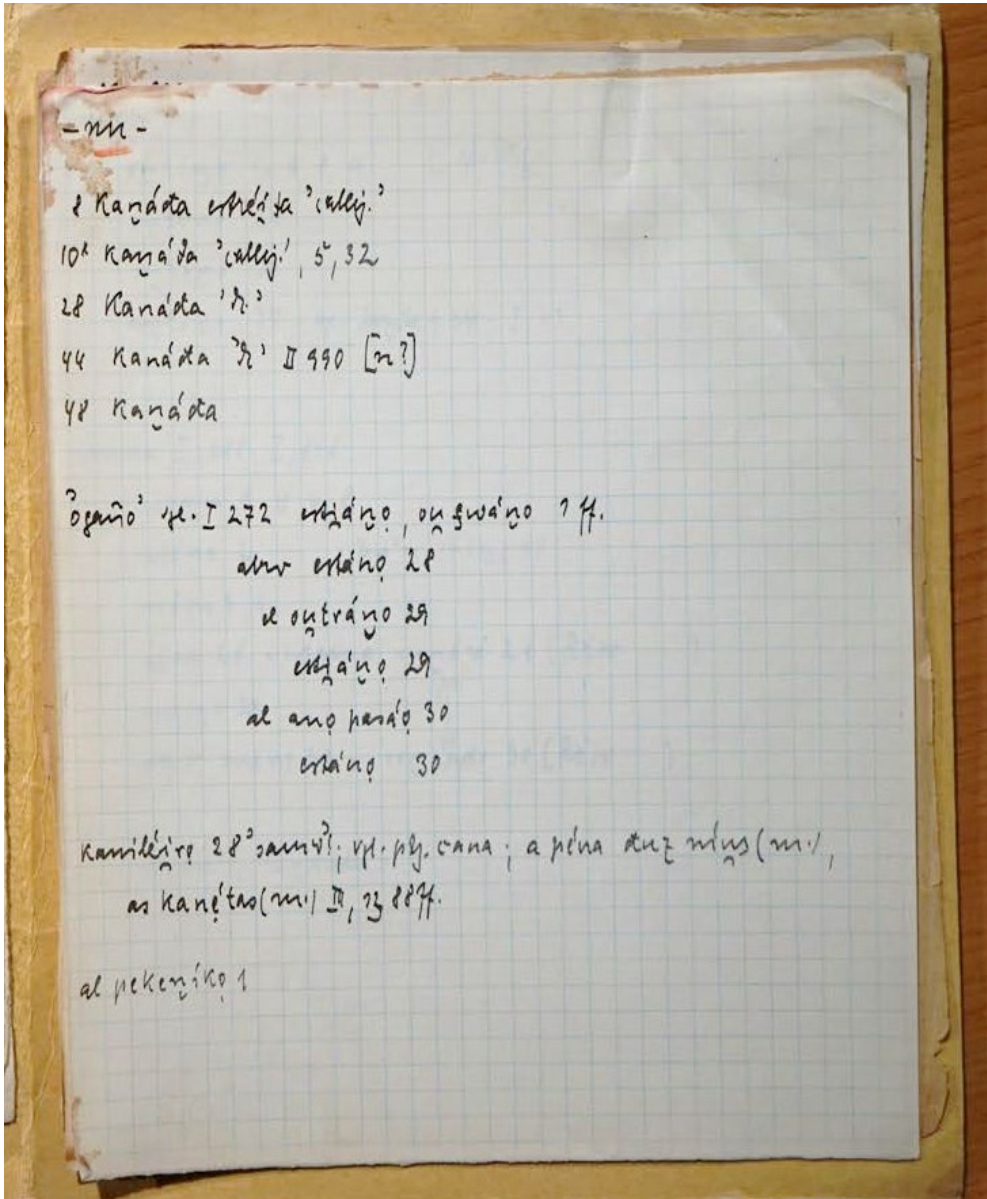 -nn-
8 Kan̯áđa estréi̯ta 'callej.'
10² Kan̯áđa 'callej.', 5, 32
28 Kanáđa
44 Kanáđa II 990 [n?]
48 Kan̯áđa
'ogaño' vgl. I 272 esti̯án̯o̜, on̯ g̯wán̯o 1 ff.
aber están̯o̜ 28
el ou̯trán̯o 29
esti̯án̯o̜ 29
al ano̜ pasáo̜ 30
estáno̜ 30
kaniléi̯ro̜ 28 vgl. ptg. cana; a péna duz níu̯s (m.),
as kanę́tas (m.) III, 88 ff.
al peken̯íko̜ 1